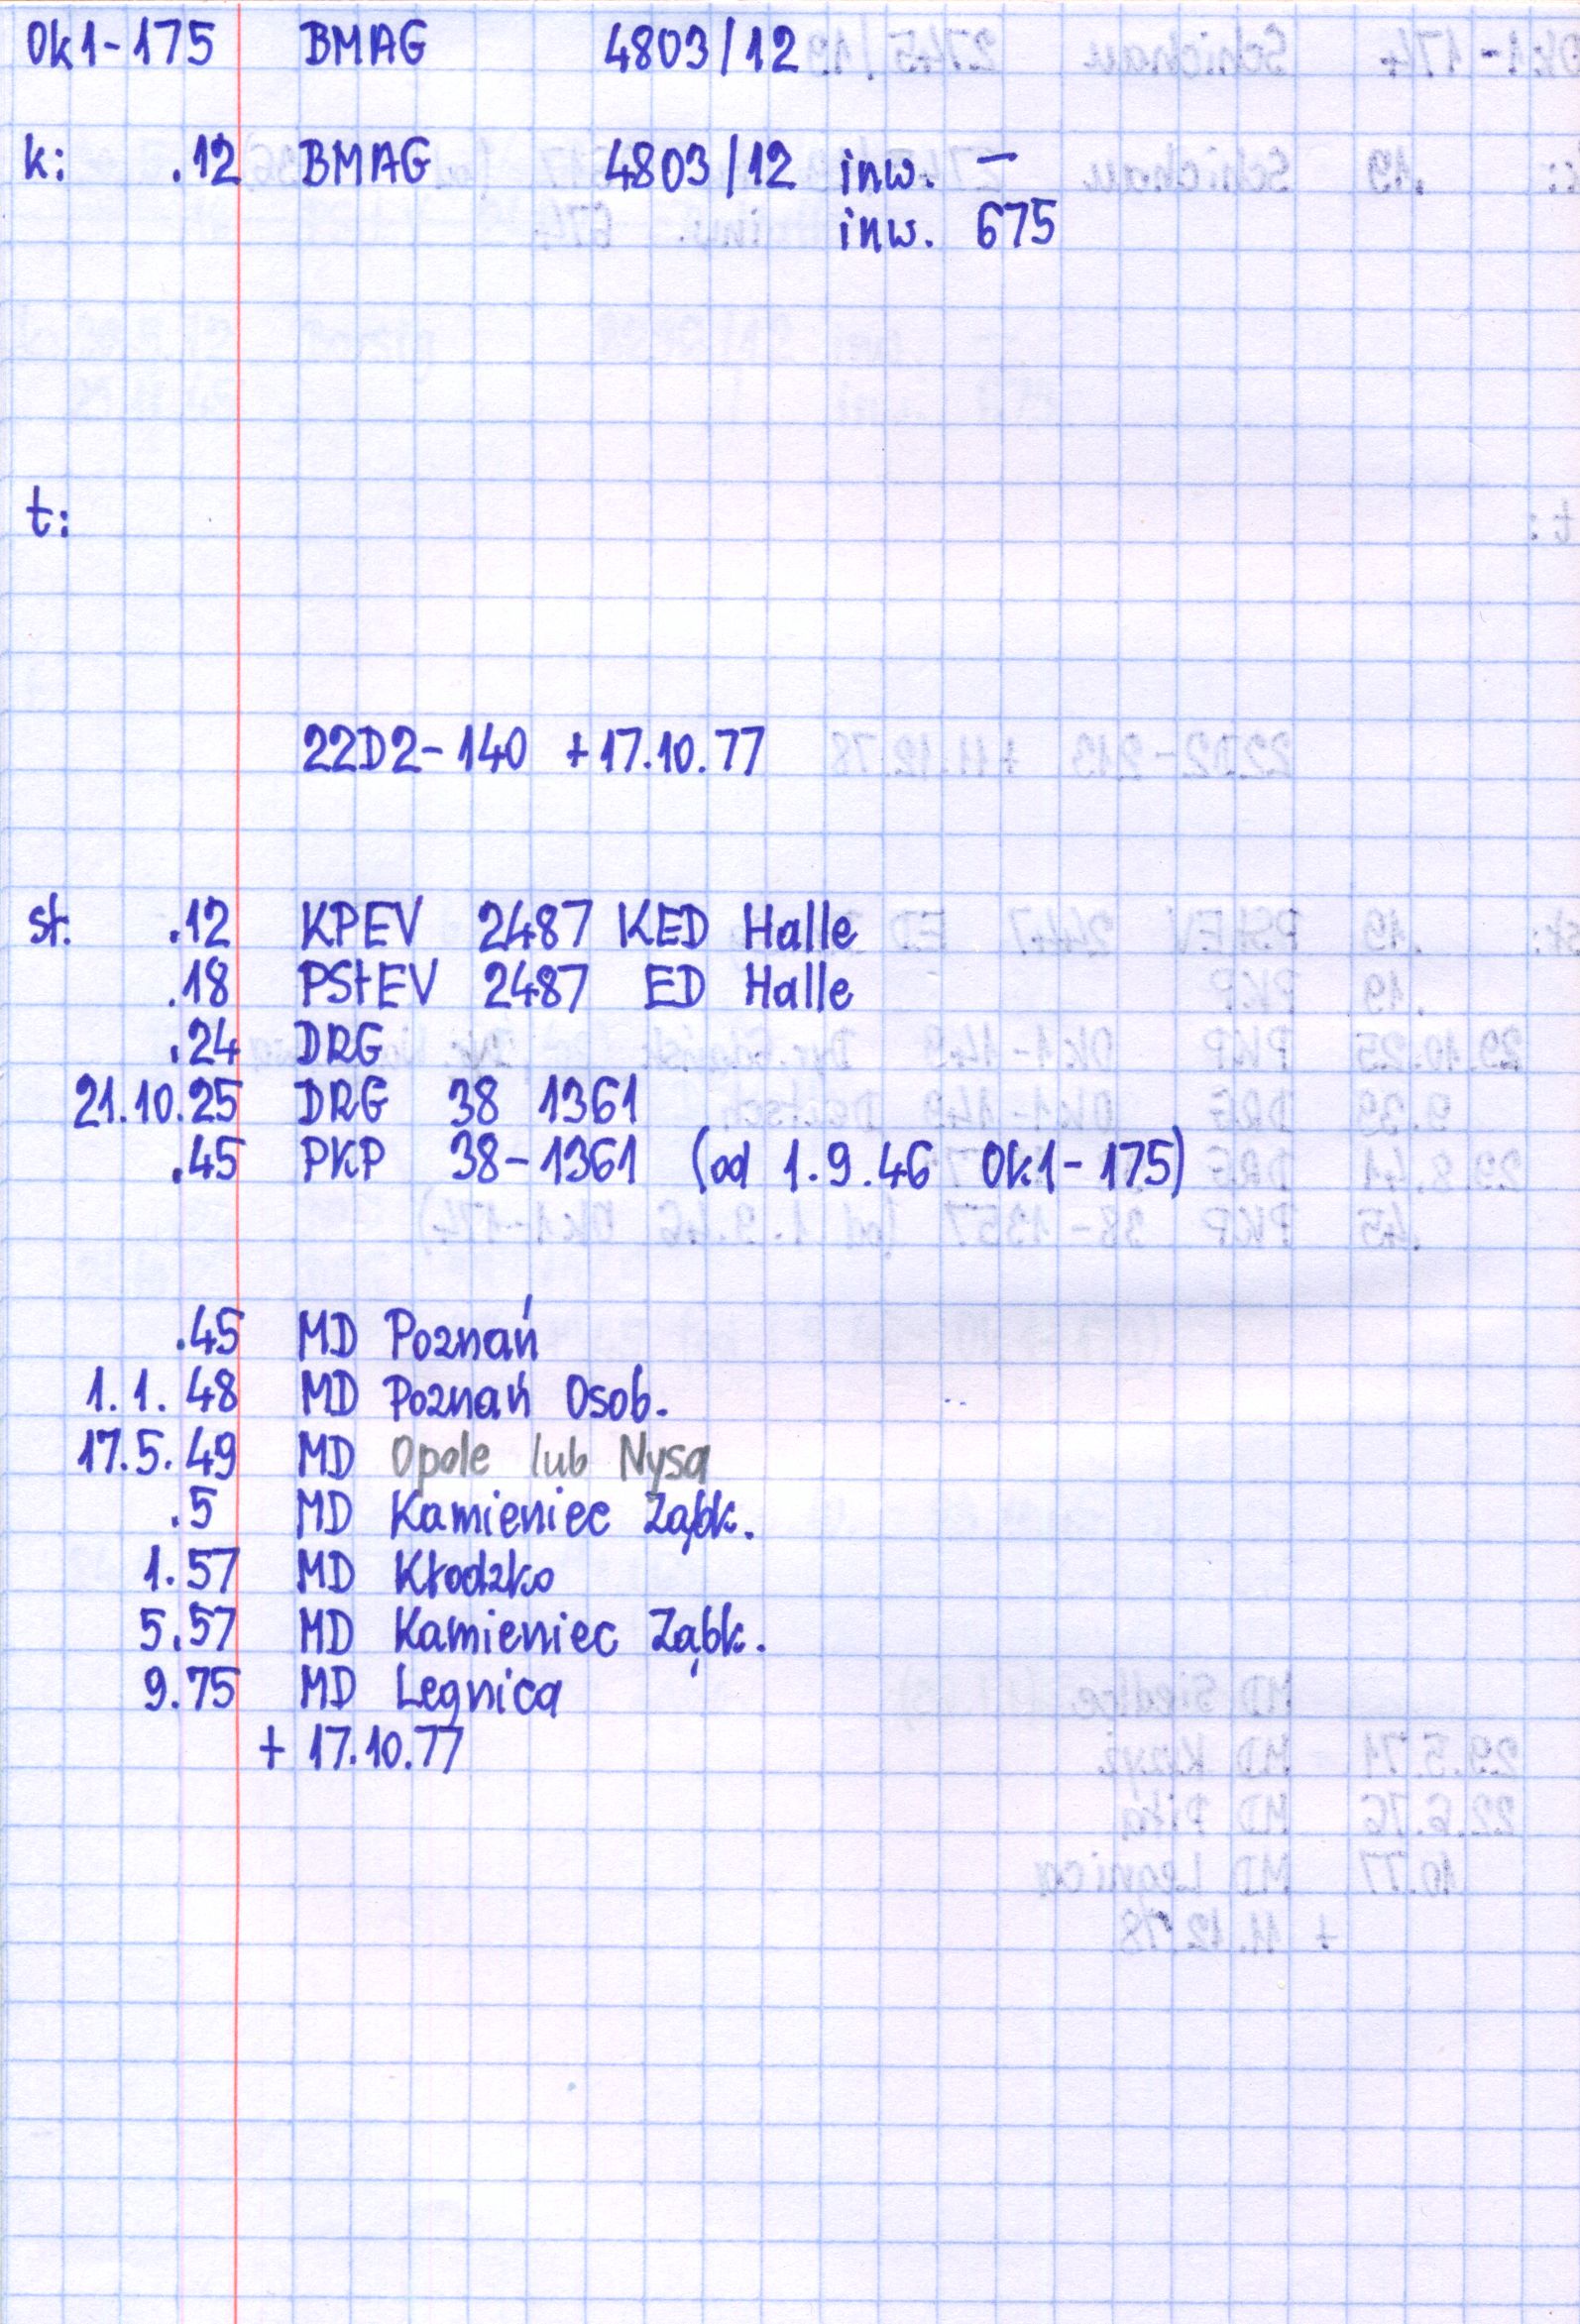 Ok1-175 BMAG 4803/12
k: .12 BMAG 4803/12 inw. —
inw. 675
t:
22D2-140 +17.10.77
st. .12 KPEV 2487 KED Halle
.18 PStEV 2487 ED Halle
.24 DRG
21.10.25 DRG 38 1361
.45 PKP 38-1361 (od 1.9.46 Ok1-175)
.45 MD Poznań
1.1.48 MD Poznań Osob.
17.5.49 MD Opole lub Nysa
.5 MD Kamieniec Ząbk.
1.57 MD Kłodzko
5.57 MD Kamieniec Ząbk.
9.75 MD Legnica
+ 17.10.77